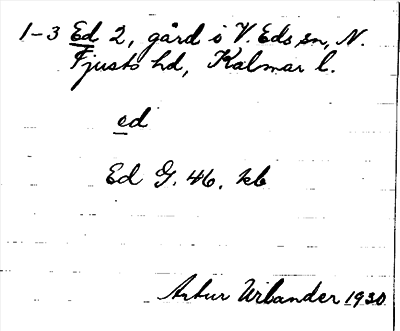 1-3 Ed 2, gård i V. Eds sn, N.
Tjusts hd, Kalmar l.
ed
Ed G. 46. kb
Artur Wibander 1930